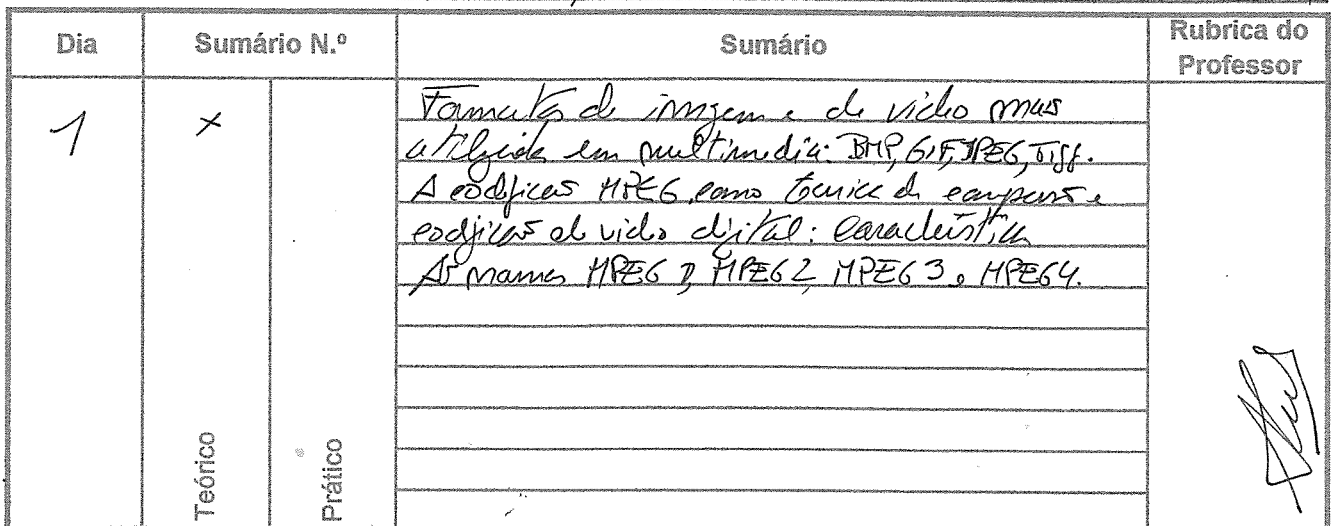 Dia Sumário N.º Sumário Rubrica do Professor
1 x
Formatos de imagem e de vídeo mais
utilizados em multimédia: BMP, GIF, JPEG, Tiff.
A codificação MPEG como técnica de compressão e
codificação de vídeo digital: Características
As normas MPEG 1, MPEG 2, MPEG 3 e MPEG4.
Teórico
Prático